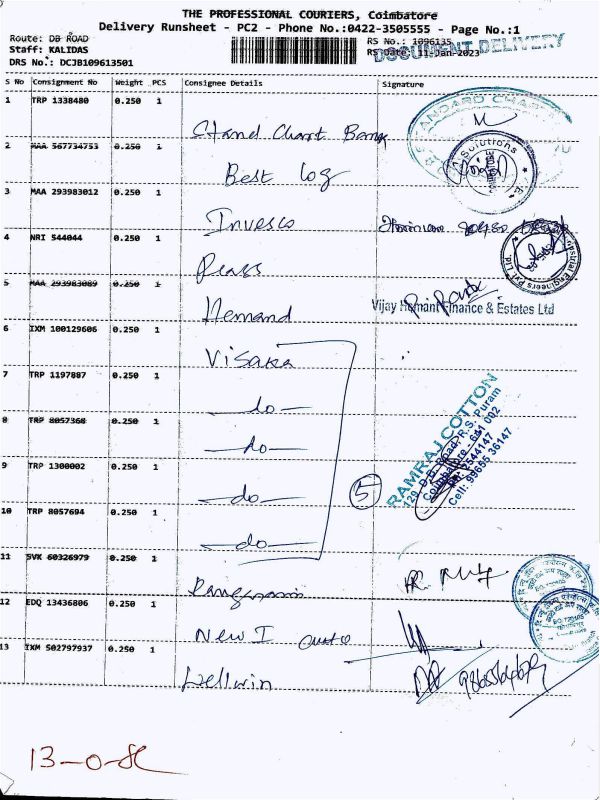 THE PROFESSIONAL COURIERS, Coimbatore
Delivery Runsheet - PC2 - Phone No.:0422-3505555 - Page No.:1
Route: DB ROAD
RS No.: 1096135
DOCUMENT DELIVERY
Staff: KALIDAS
RS Date: 11-Jan-2023
DRS No.: DCJB109613501
S No Consignment No Weight PCS Consignee Details Signature
1 TRP 1338480 0.250 1
Stand Chart Bank
STANDARD CHART
2 MAA 567734753 0.250 1
Best Log
Solutions
3 MAA 293983012 0.250 1
Invesco
4 NRI 544044 0.250 1
Engineers Pvt Ltd
5 MAA 293983089 0.250 1
Hemand
Vijay Hemant Finance & Estates Ltd
6 IXM 100129606 0.250 1
Visaka
7 TRP 1197887 0.250 1
-do-
8 TRP 8057368 0.250 1
-do-
9 TRP 1300002 0.250 1
-do-
5
RAMRAJ COTTON
129, D.B. Road, R.S. Puram
Coimbatore - 641 002
2544147
Cell: 99655 36147
10 TRP 8057694 0.250 1
-do-
11 SVK 60326979 0.250 1
12 EDQ 13436806 0.250 1
New I
13 IXM 502797937 0.250 1
Wellwin
13-0-